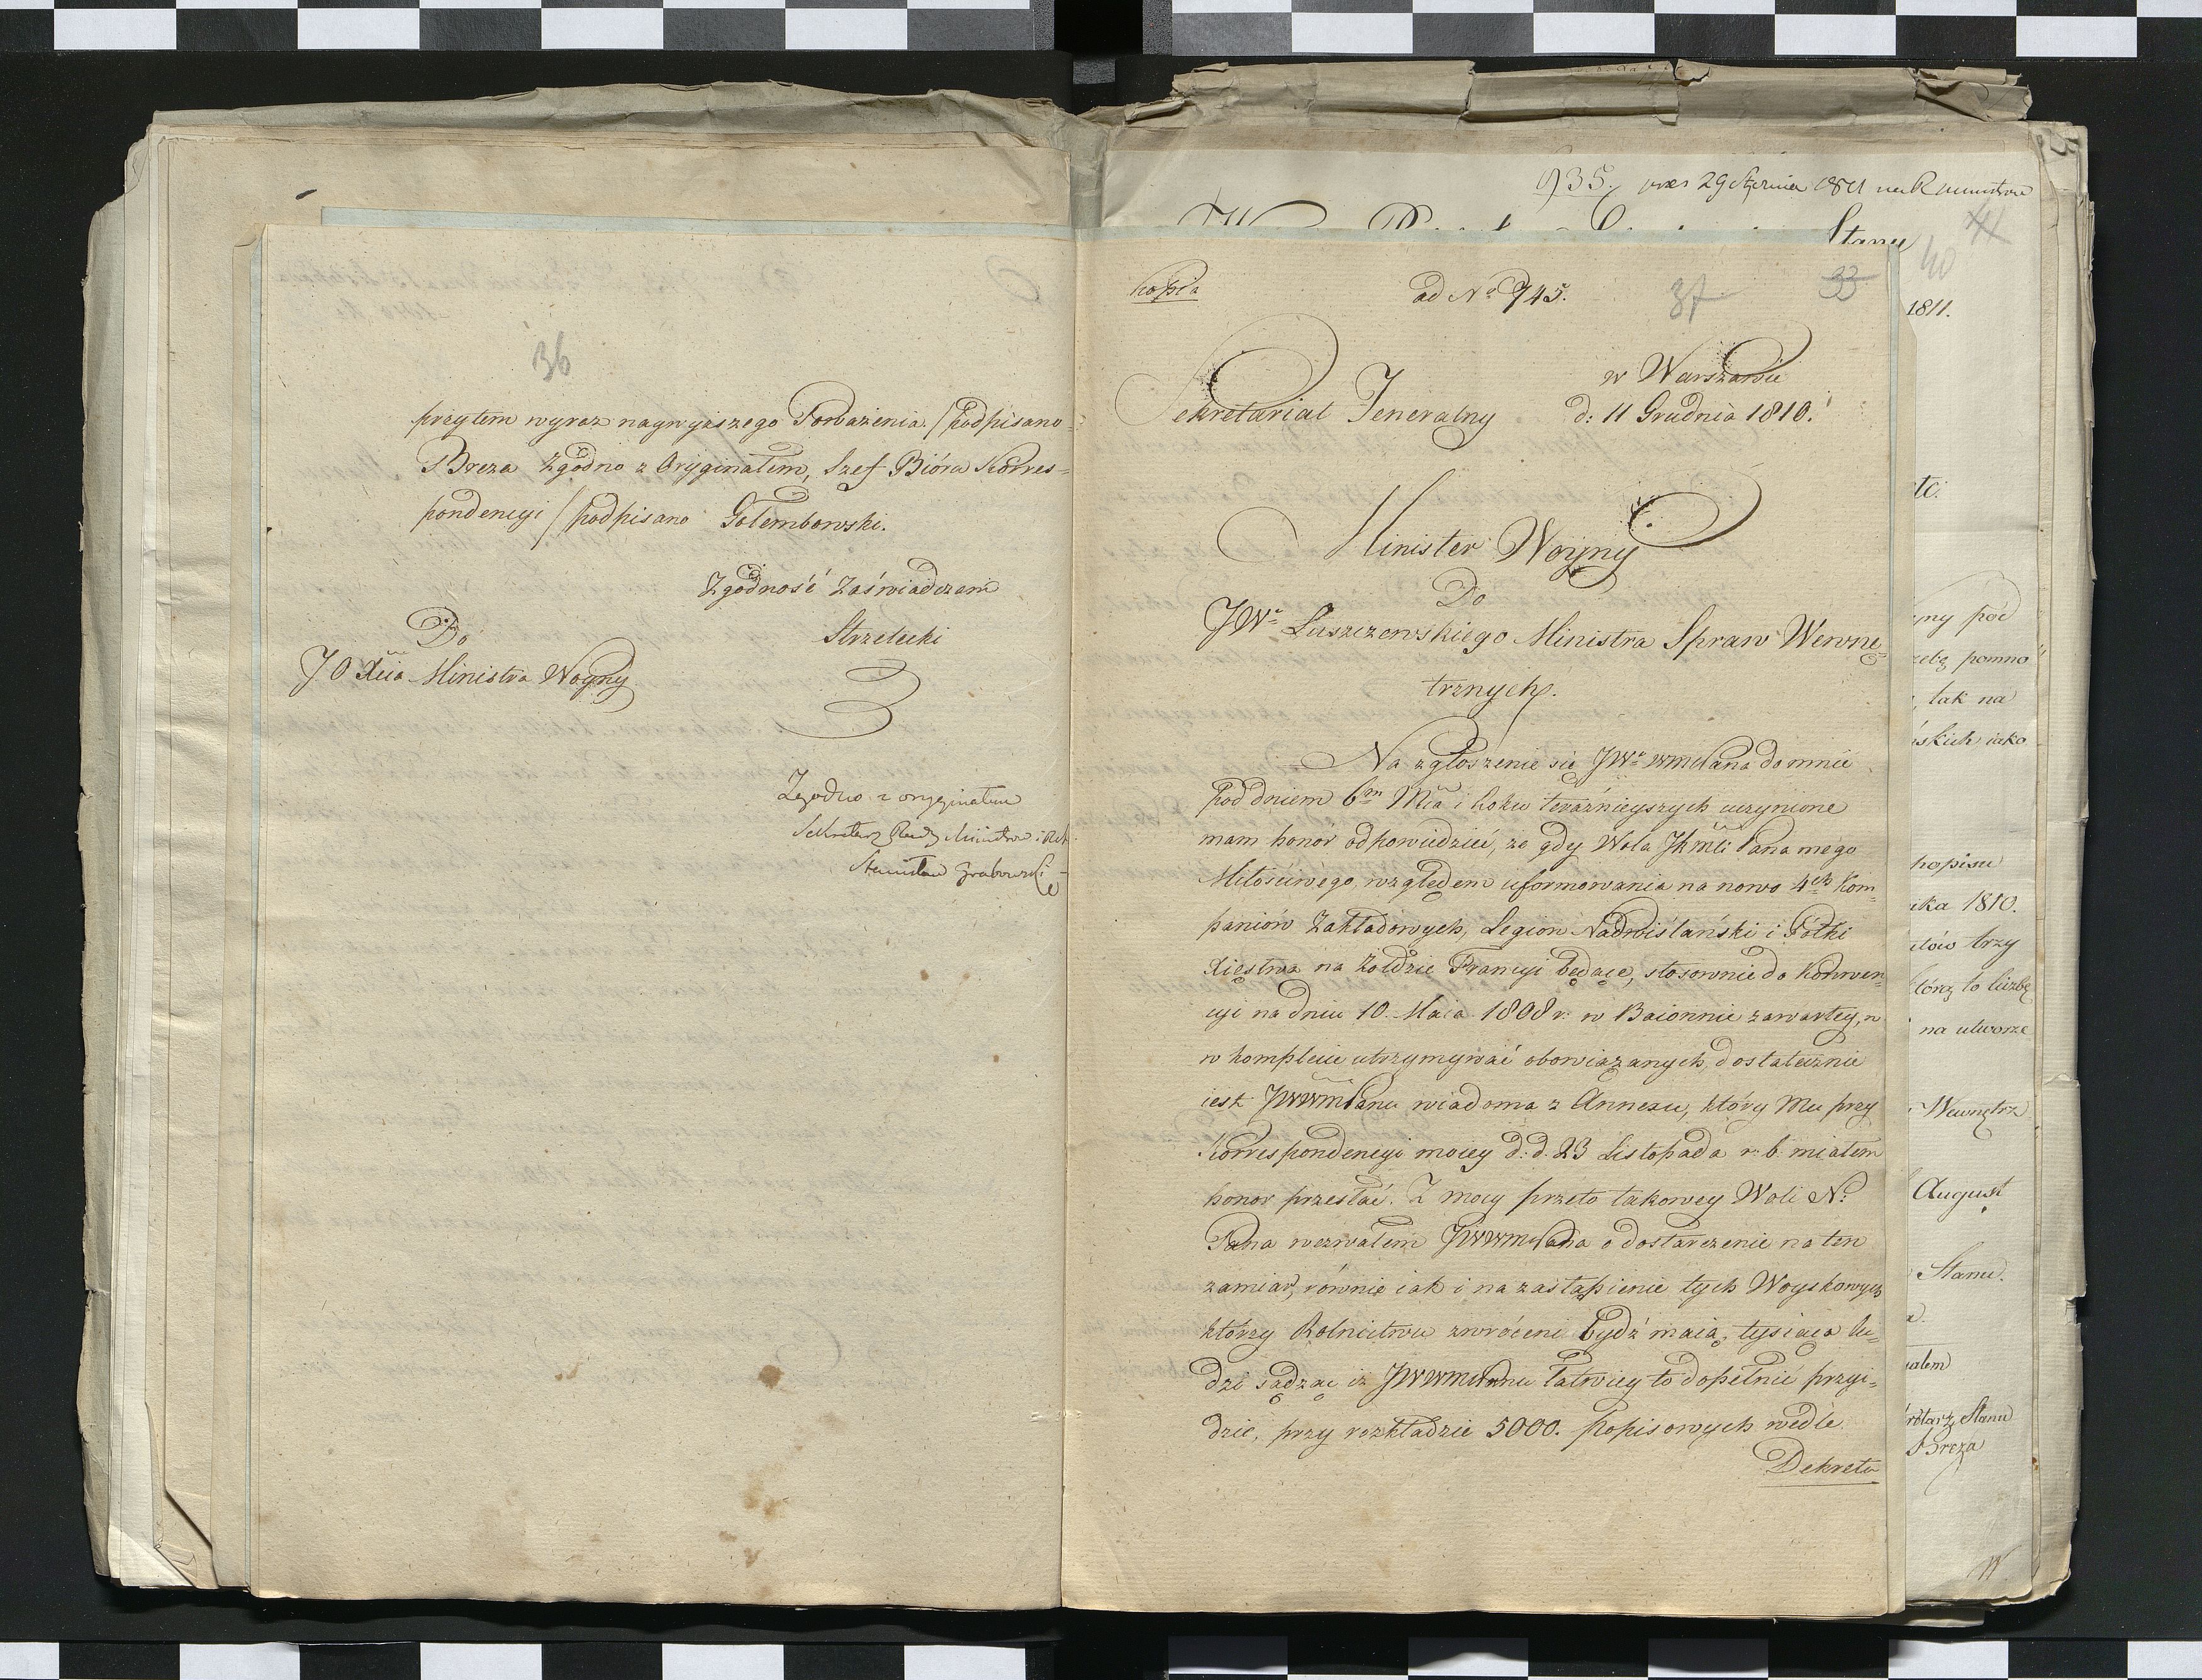 36
przytem wyraz naywyższego Poważenia. /podpisano
Breza Zgodno z Oryginałem, Szef Bióra Korres=
pondencyi /podpisano Gołembowski.
Zgodność Zaświadczam
Strzelecki
Do
JO Xcia Ministra Woyny
Zgodno z oryginałem
Sekretarz Rady Ministrów
Stanisław Grabowski
935. 29 Stycznia 1811
Stanu
41
40
1811.
kopia
ad No 745.
37
33
w Warszawie
Sekretariat Jeneralny d: 11 Grudnia 1810.
Minister Woyny
Do
JWo Łuszczewskiego Ministra Spraw Wewnę=
trznych.
Na zgłoszenie się JWo WmcPana do mnie
pod dniem 6m Mca i Roku teraźnieyszych uczynione
mam honor odpowiedzieć, że gdy Wola JKMci Pana mego
Miłościwego, względem uformowania na nowo 4ch Kom=
paniów Zakładowych, Legion Nadwiślański i Półki
Xięstwa na żołdzie Francyi będące, stosownie do Konwen=
cyi na dniu 10. Maia 1808 r. w Baionnie zawartey, w
w komplecie utrzymywać obowiązanych, dostatecznie
iest JWWmPanu wiadoma z Annexu, który Mu przy
Korrespondencyi moiey d. d. 23 Listopada r. b. miałem
honor przesłać. Z mocy przeto takowey Woli N.
Pana wezwałem JWWmcPana o dostarczenie na ten
zamiar, równie iak i na zastąpienie tych Woyskowych
którzy Rolnictwu zwróceni bydź maią, tysiąca lu=
dzi sądząc iż JWWmcPanu łatwiey to dopełnić przyi=
dzie, przy rozkładzie 5000. popisowych wedle
Dekretu
etc.
ny pod
zebę pomno
, tak na
skich iako
popisu
ika 1810.
trzy
tórą to liczbę
na utworze
Wewnętrz
August
Stanu.
ałem
Stanu
Breza